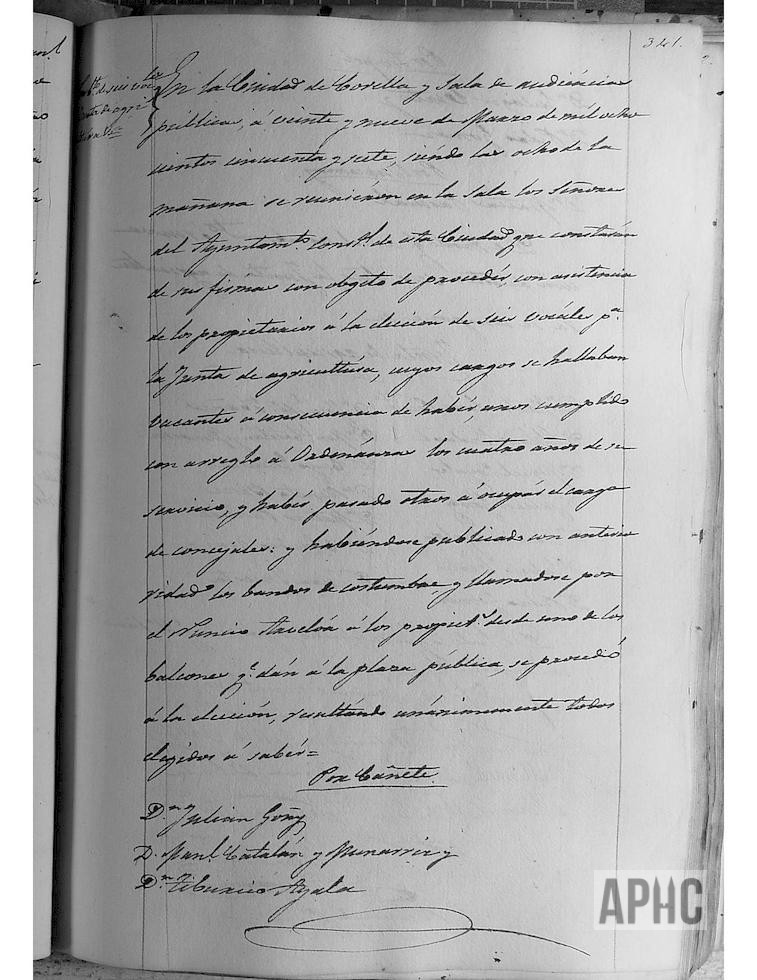 341.
En la Ciudad de Corella y Sala de audiencias
públicas, á veinte y nueve de Marzo de mil ocho
cientos cincuenta y siete, siendo las ocho de la
mañana se reuniéron en la sala los Señores
del Ayuntamto. Constl. de esta Ciudad que constarán
de sus firmas con obgeto de procedér, con asistencia
de los propietarios á la elección de seis vocáles pa.
la Junta de agricultúra, cuyos cargos se hallaban
vacantes á consecuencia de habér, unos cumplido
con arreglo á Ordenánzas los cuatro años de su
servicio, y habér pasado otros á ocupár el cargo
de concejales: y habiéndose publicado con anterio
ridad los bandos de costumbre, y llamadose por
el Nuncio á los propiets. desde uno de los
balcones qe. dán á la plaza pública, se procedió
á la elección, resultándo unánimemente todos
elegidos á sabér=
Por Cañete.
Dn. Julian Goñy
D. Manl. Catalán y Munarriz y
Dn. Tiburcio Ayala
APHC